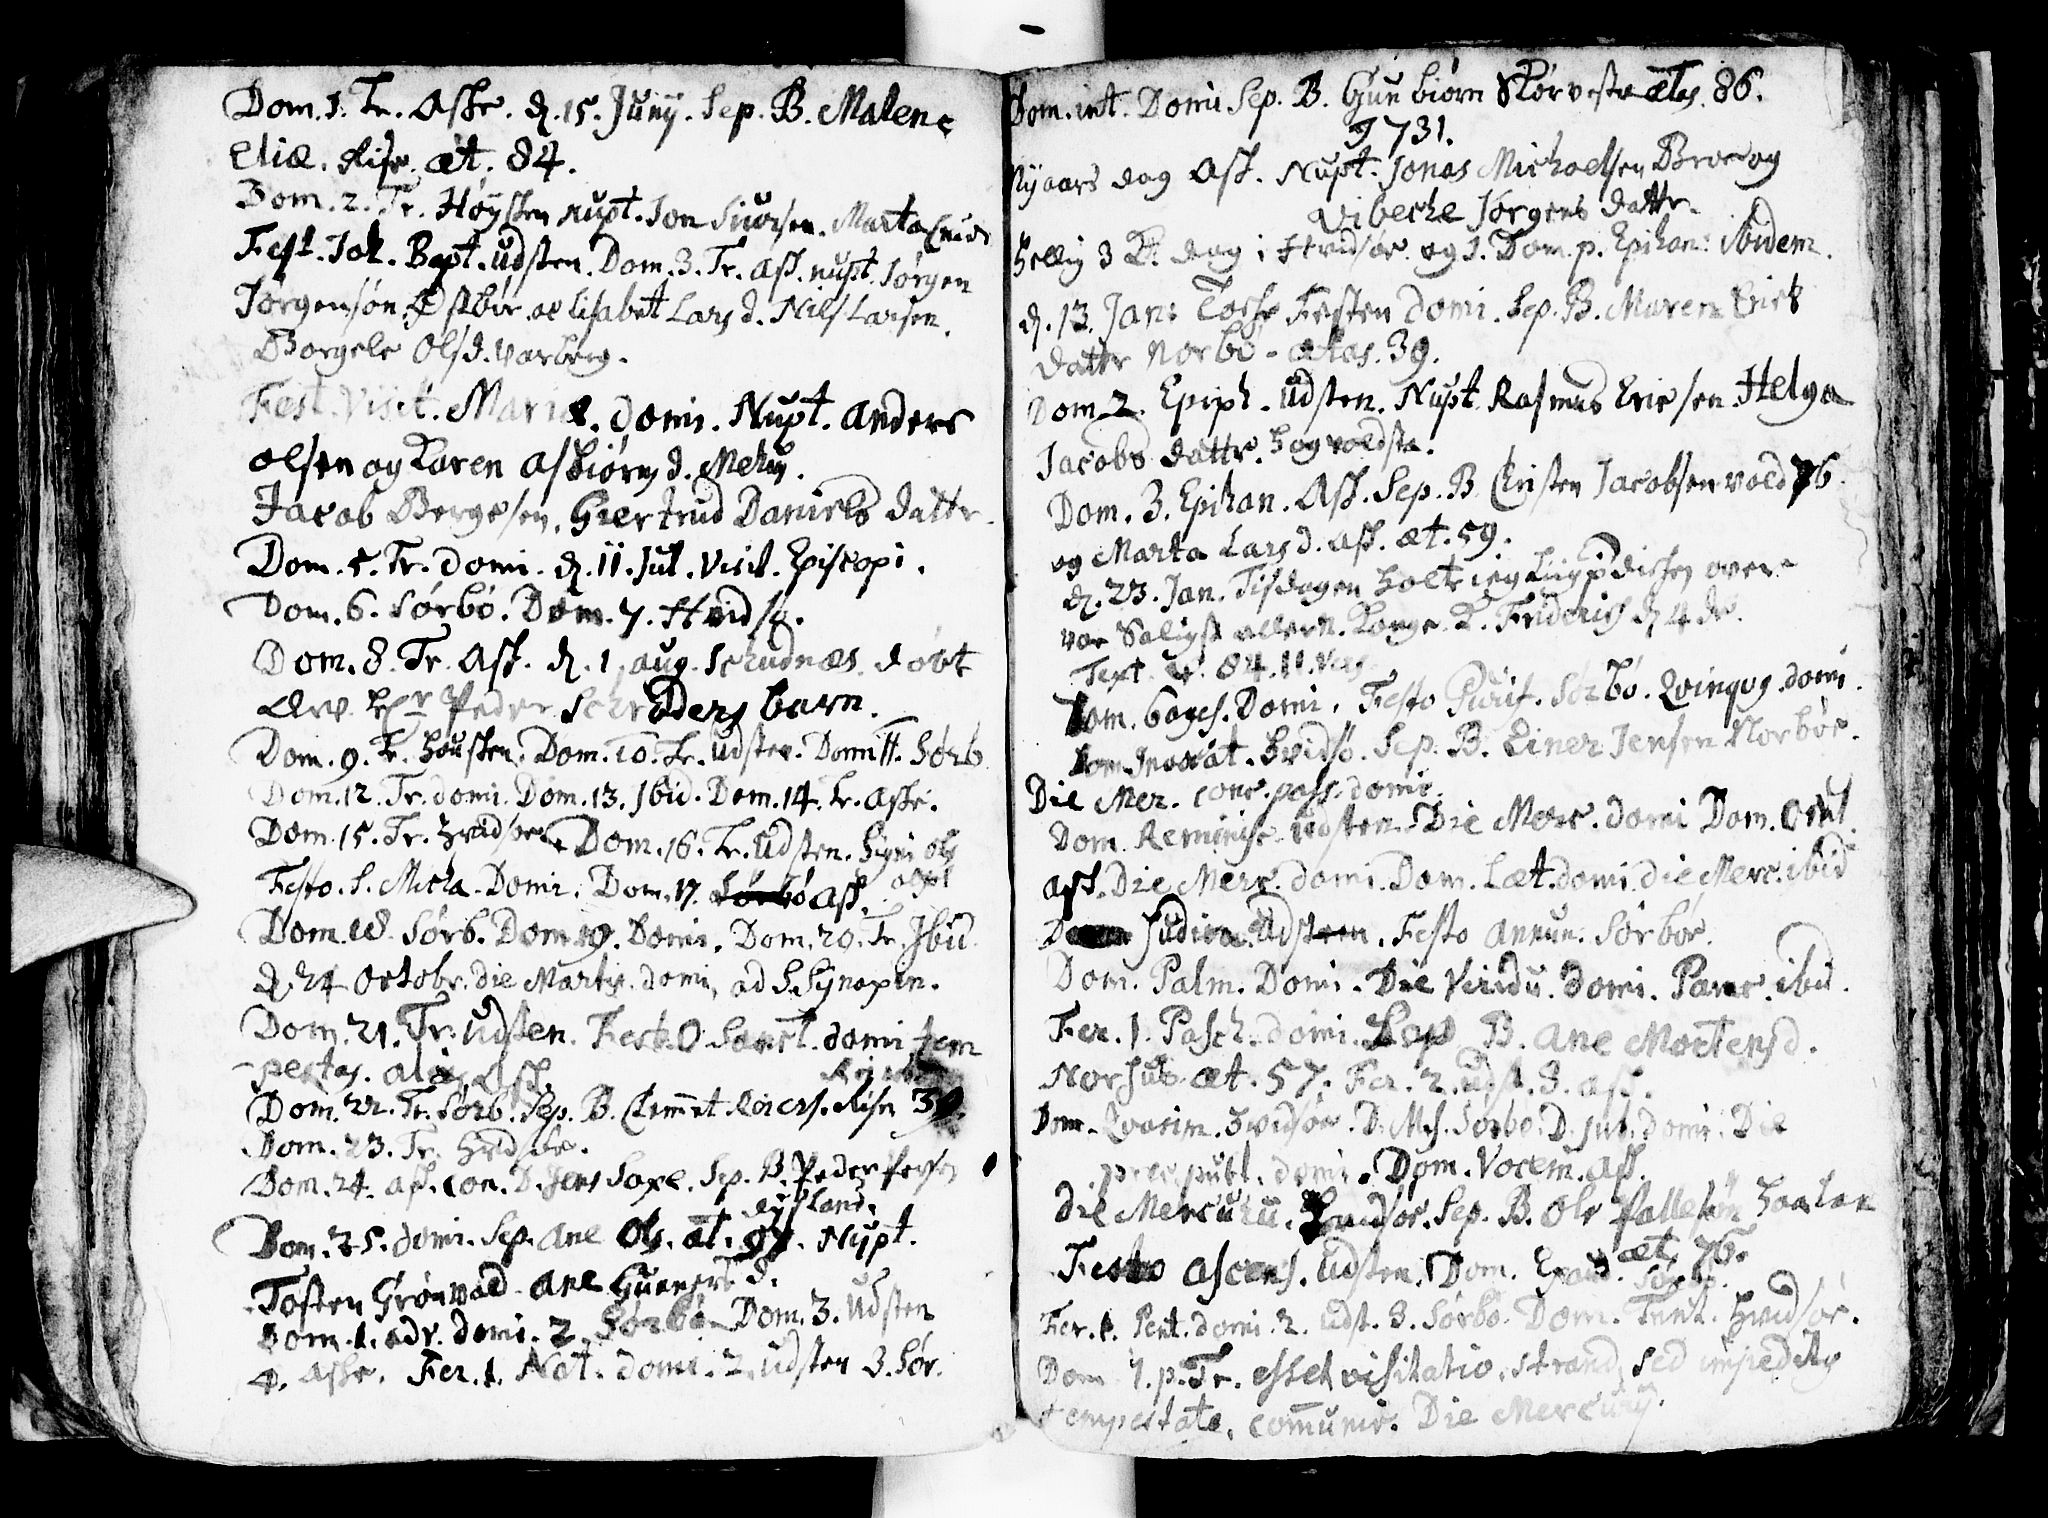 Dom. 1. Tr. Aske. d. 15. Junij. Sep. B. Malene
Eliæ. Rise. æt. 84.
Dom. 2. Tr. Høysten nupt. Jon Siursen. Marta
Fest. Joh. Bapt. udsten. Dom. 3. Tr. Ask. nupt. Jørgen
Jørgensøn Østbøe. Elisabet Lars d. Nils Larsen.
Borgele Ols d. Varberg.
Fest. Visit. Mariæ. domi. Nupt. Anders
Olsen og Karen Asbiørns d. Meheg.
Jacob Bergesen. Giertrud Daniels datter
Dom. 5. Tr. domi. d. 11. Jul. Visit. Episcopi.
Dom. 6. Sørbø. Dom. 7. Hvidsø.
Dom. 8. Tr. Ask. d. 1. aug. Schudnæs døbt
Hr Peder Schrøders barn.
Dom. 9. Tr. Housken. Dom. 10. Tr. Udsten. Dom. 11. Sørb
Dom. 12. Tr. domi. Dom. 13. Ibid. Dom. 14. Tr. Aske.
Dom. 15. Tr. Hvidsøe. Dom. 16. Tr. Udsten. Ols
Festo. S. Micha. Domi. Dom. 17. Sørbø Ask.
Dom. 18. Sørb. Dom. 19. Domi. Dom. 20. Tr. Ibid.
d. 24 Octobr. die Martis. domi. ad S. Synaxin.
Dom. 21. Tr. Udsten. Fest. O. Sanct. domi tem
-pestas. alias Ask.
Dom. 22. Tr. Sørb. Sep. B. Clemmet Rise 39.
Dom. 23. Tr. Hvidsøe.
Dom. 24. Ask. con. D. Jens Saxe. Sep. B. Peder Persen
Dysland.
Dom. 25. domi. Sep. Ane Ols. æt. Nupt.
Tosten Grønvad. Ane Guners d.
Dom. 1. adv. domi. 2. Sørbø. Dom. 3. Udsten
4. Aske. Fer. 1. Nat. domi. 2. Udsten 3. Sør.
Dom. int. Domi Sep. B. Gunbiørn Størveste ætas. 86.
1731.
Nyaars dag Ask. Nupt. Jonas Michaelsen Broe og
Vibeche Jørgens datter.
Hellig 3 K. dag i Hvidsøe og 1. Dom. p. Epihan: ibidem.
d. 13. Jan: Tacke Festen domi. Sep. B. Maren Erick
datter Norbø. ætas. 39.
Dom. 2. Epiph. Udsten. Nupt. Rasmus Ericsen. Helga
Jacobs datter. Hogvoldsta.
Dom. 3. Epihan. Ask. Sep. B. Christen Jacobsen Vold 76
og Marta Lars d. Ask. æt. 59.
d. 23. Jan. Tisdagen holt ieg over
vor Saligst allern. Konge K. Friderich d 4 de.
Text. Ψ. 84. 11. Vers
Dom. 6ages. Domi. Festo Purif. Sørbø. Qvinqvg. domi.
Dom. Invocat. Hvidsø. Sep. B. Einer Jensen Norbøe.
Die Mer. conc. pass. domi.
Dom. Reminisc. Udsten. Die Merc. domi Dom. Ocul.
Ask. Die Merc. domi. Dom. Læt. domi. die Merc. ibid
Judica. Udsten. Festo Annun. Sørbøe.
Dom. Palm. Domi. Die Viridu. domi. Parasc. ibid.
Fer. 1. Pasch. domi. Sep B. Ane Mortens d.
Norhus. æt. 57. Fer. 2. udst. 3. Ask.
Dom. Qvasim. Hvidsøe. D. Mis. Sørbø. D. Jub. domi. Die
prec. publ. domi. Dom. Vocem. Ask.
die Mercurii. Hvidsøe. Sep. B. Ole Pallesøn Haaland
æt. 76.
Festo Ascens. Udsten. Dom. Exaud. Sørbø.
Fer. 1. Pent. domi. 2. Udst. 3. Sørbø. Dom. Trint. Hvidsøe.
Dom. 1. p. Tr. esset visitatio. Strand, sed impeditus
tempestate, comunic. Die Mercurij.